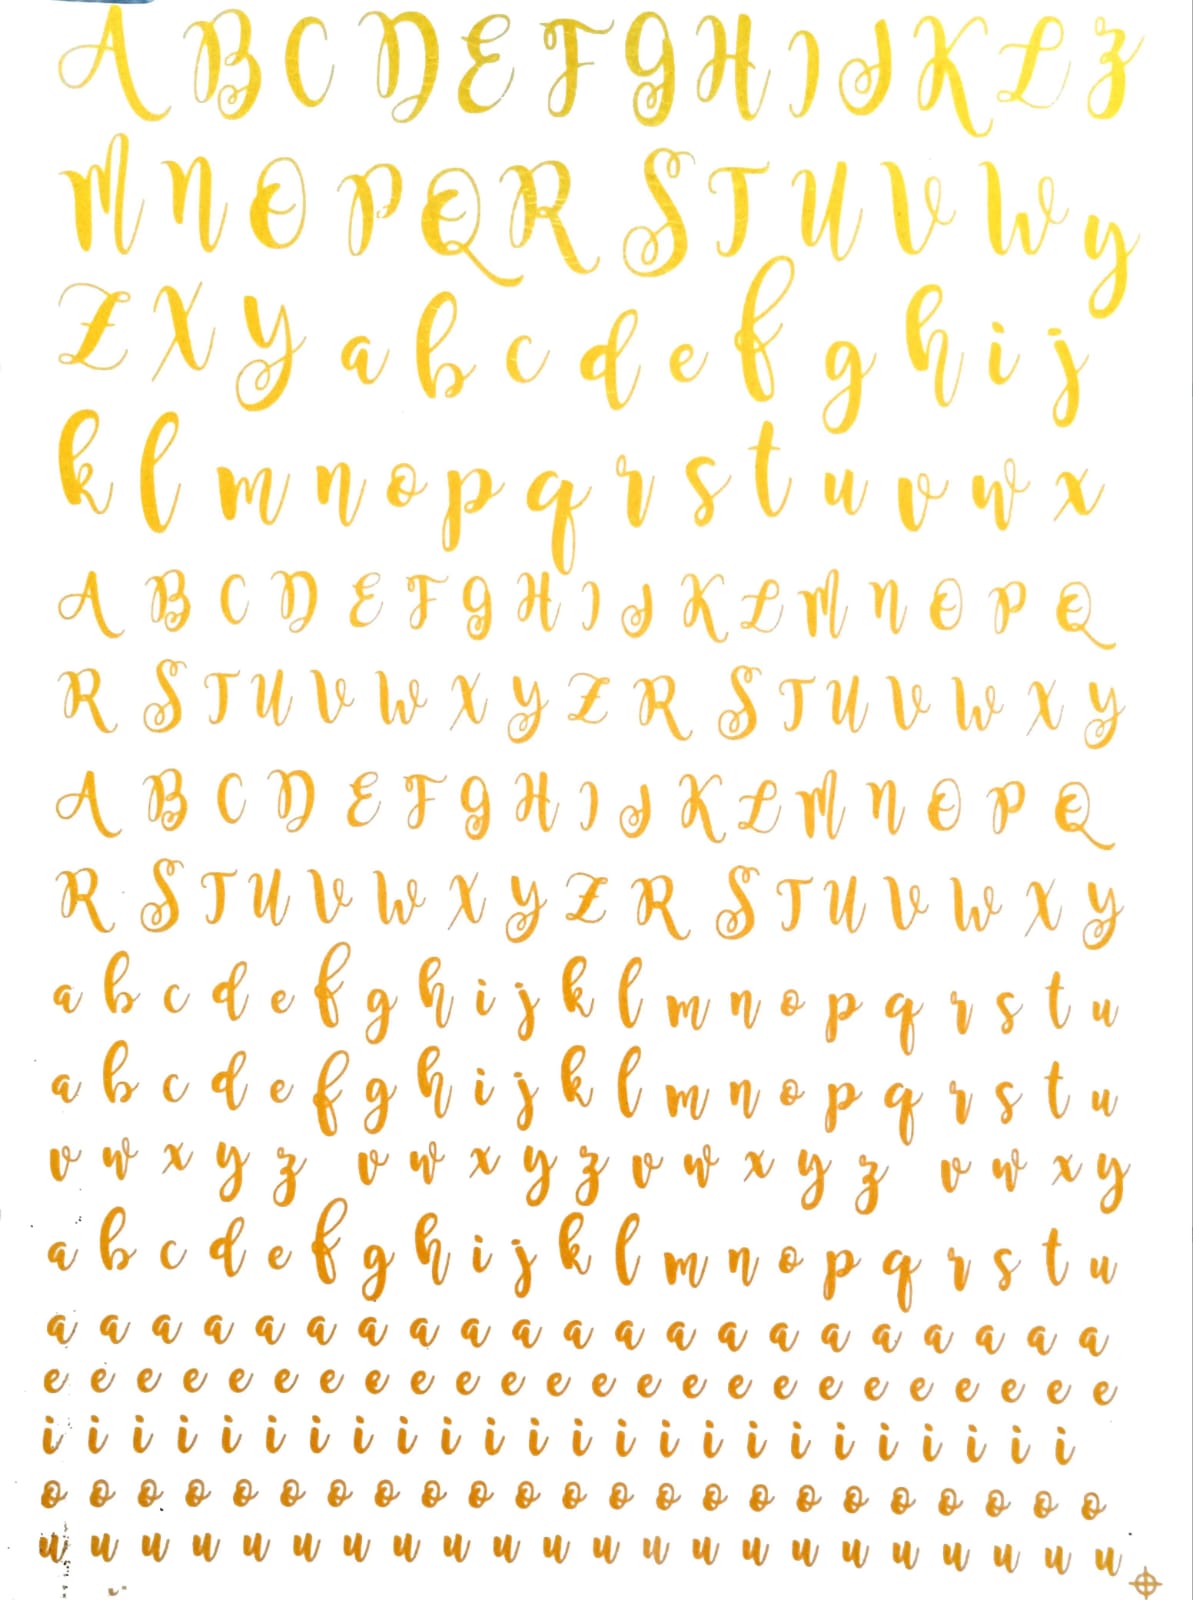 A B C D E F G H I J K L z
M N O P Q R S T U V W y
Z X Y a b c d e f g h i j
k l m n o p q r s t u v w x
A B C D E F G H I J K L M N O P Q
R S T U V W X Y Z R S T U V W X Y
A B C D E F G H I J K L M N O P Q
R S T U V W X Y Z R S T U V W X Y
a b c d e f g h i j k l m n o p q r s t u
a b c d e f g h i j k l m n o p q r s t u
v w x y z v w x y z v w x y z v w x y
a b c d e f g h i j k l m n o p q r s t u
a a a a a a a a a a a a a a a a a a a a a
e e e e e e e e e e e e e e e e e e e e e e e e
i i i i i i i i i i i i i i i i i i i i i i i i
o o o o o o o o o o o o o o o o o o o o o o o
u u u u u u u u u u u u u u u u u u u u u u